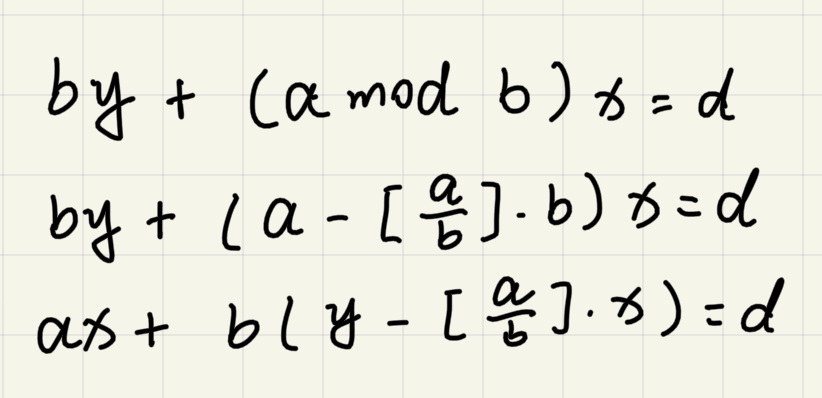 by + (a mod b) x = d
by + (a - [a/b] · b) x = d
ax + b(y - [a/b] · x) = d